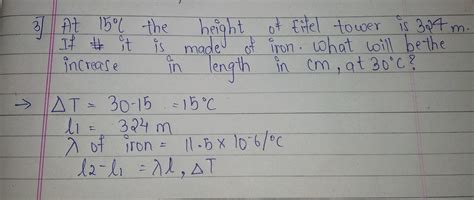 3] At 15°C the height of Eifel tower is 324 m.
If it is made of iron. what will be the
increase in length in cm, at 30°C?
→ ΔT = 30-15 = 15°C
l1 = 324 m
λ of iron = 11.5 × 10⁻⁶/°C
l2-l1 = λl, ΔT